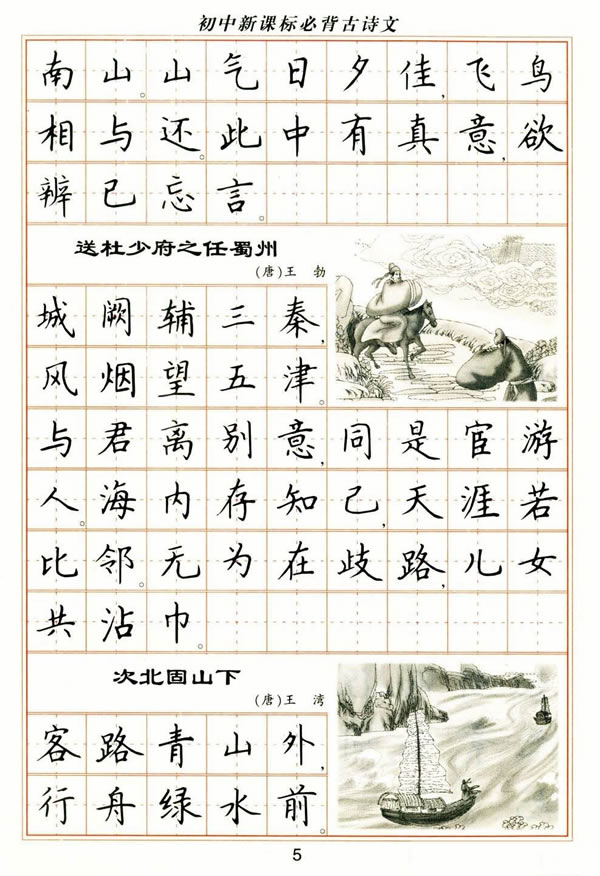 初中新课标必背古诗文
南山。山气日夕佳,飞鸟
相与还。此中有真意,欲
辨已忘言。
送杜少府之任蜀州
(唐)王 勃
城阙辅三秦,
风烟望五津。
与君离别意,同是宦游
人。海内存知己,天涯若
比邻。无为在歧路,儿女
共沾巾。
次北固山下
(唐)王 湾
客路青山外,
行舟绿水前。
5